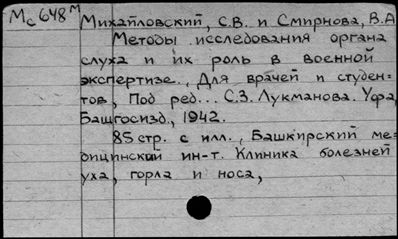 Мс648м Михайловский, С.В. и Смирнова, В.А
Методы исследования органа
слуха и их роль в военной
экспертизе., Для врачей и студен-
тов, Под ред... С.З. Лукманова. Уфа,
Башгосизд., 1942.
85 стр. с илл., Башкирский ме-
дицинский ин-т. Клиника болезней
уха, горла и носа,